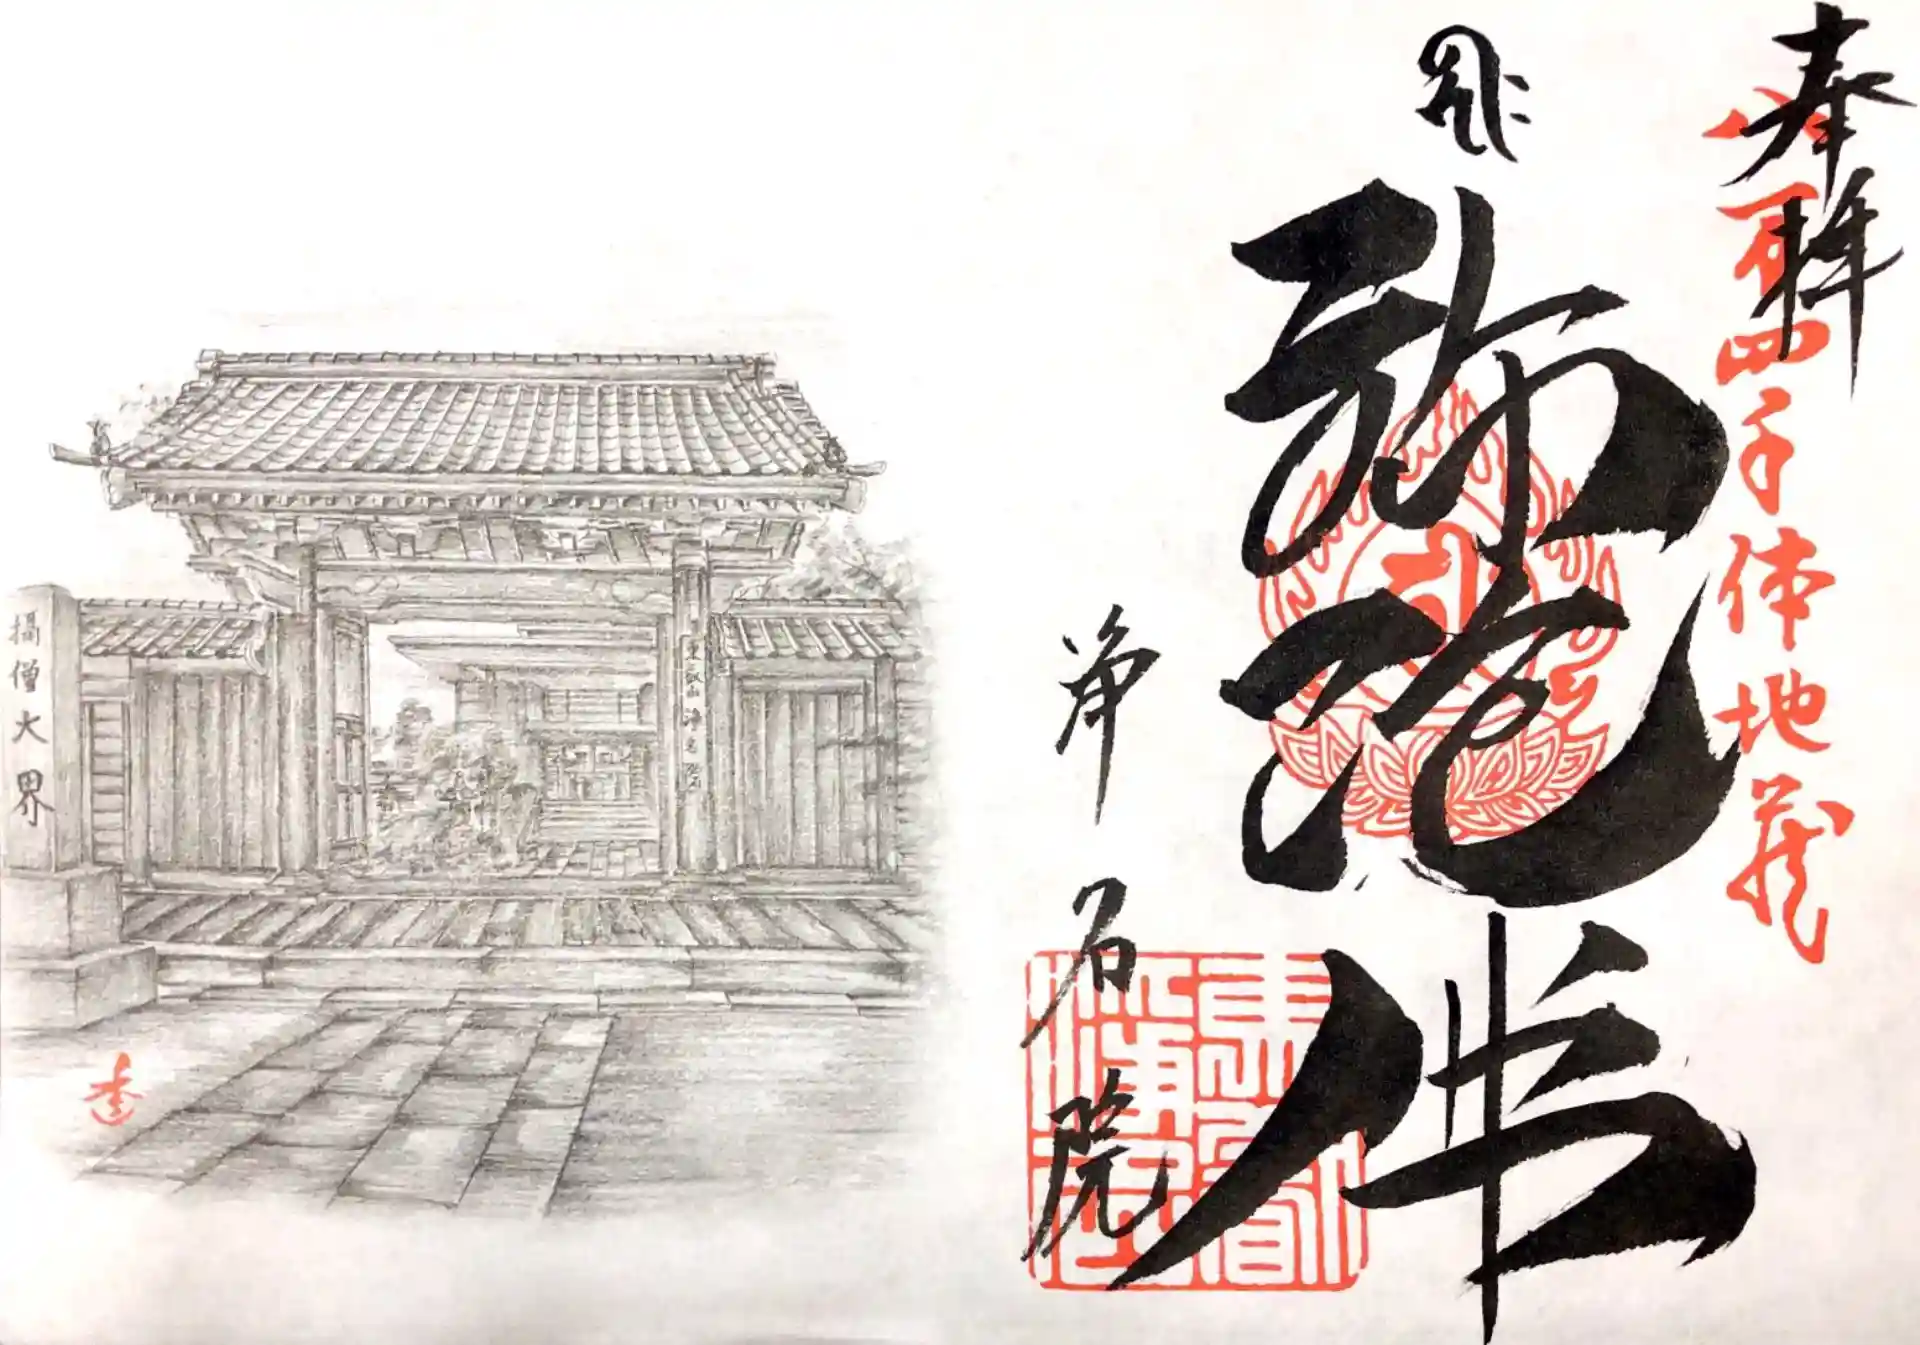 奉拝
八万四千体地蔵
弥陀佛
浄名院
攝僧大界
東叡山 浄名院